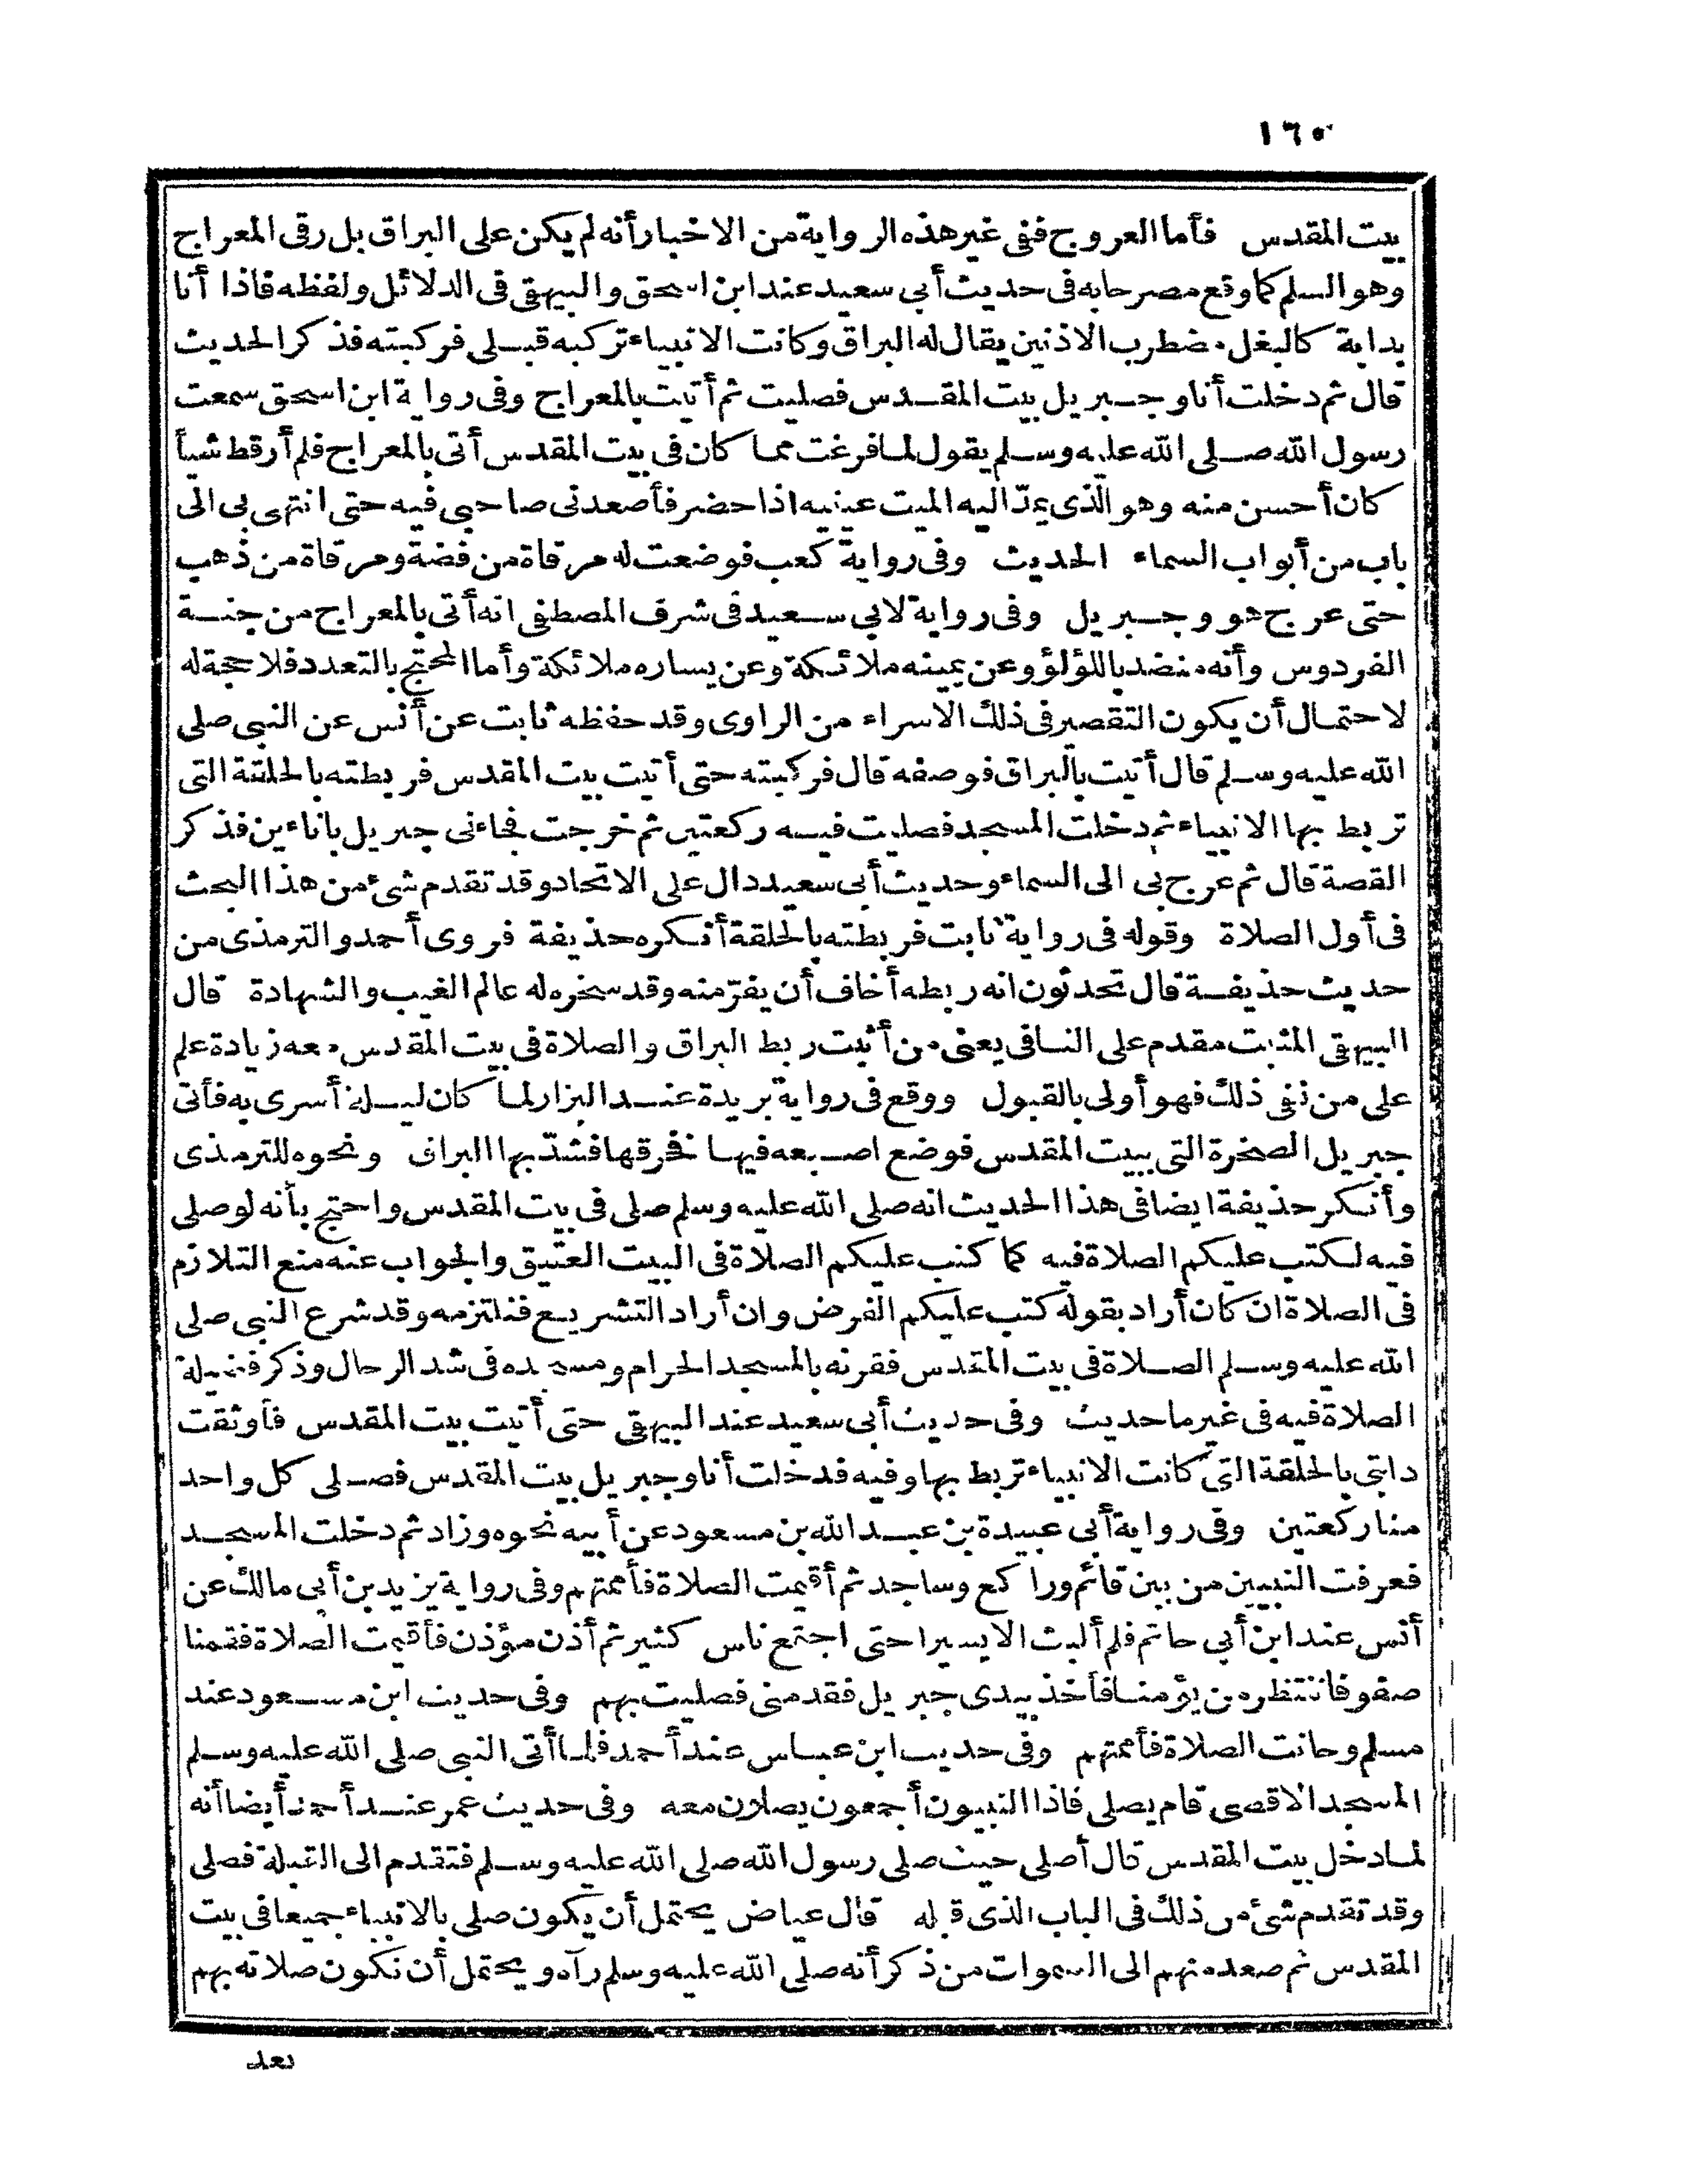 ١٦٠
بيت المقدس فأما العروج ففى غير هذه الرواية من الاخبار أنه لم يكن على البراق بل رقى المعراج
وهو السلم كما وقع مصرحا به فى حديث أبى سعيد عند ابن اسحق والبيهقى فى الدلائل ولفظه فاذا أنا
بدابة كالبغل مضطرب الاذنين يقال له البراق وكانت الانبياء تركبه قبلى فركبته فذكر الحديث
قال ثم دخلت أنا وجبريل بيت المقدس فصليت ثم أتيت بالمعراج وفى رواية ابن اسحق سمعت
رسول الله صلى الله عليه وسلم يقول لما فرغت مما كان فى بيت المقدس أتى بالمعراج فلم أر قط شيأ
كان أحسن منه وهو الذى يمدّ اليه الميت عينيه اذا حضر فأصعدنى صاحبى فيه حتى انتهى بى الى
باب من أبواب السماء الحديث وفى رواية كعب فوضعت له مرقاة من فضة ومرقاة من ذهب
حتى عرج هو وجبريل وفى رواية لابى سعيد فى شرف المصطفى انه أتى بالمعراج من جنة
الفردوس وأنه منضد باللؤلؤ وعن يمينه ملائكة وعن يساره ملائكة وأما المحتج بالتعدد فلا حجة له
لاحتمال أن يكون التقصير فى ذلك الاسراء من الراوى وقد حفظه ثابت عن أنس عن النبى صلى
الله عليه وسلم قال أتيت بالبراق فوصفه قال فركبته حتى أتيت بيت المقدس فربطته بالحلقة التى
تربط بها الانبياء ثم دخلت المسجد فصليت فيه ركعتين ثم خرجت فجاءنى جبريل باناءين فذكر
القصة قال ثم عرج بى الى السماء وحديث أبى سعيد دال على الاتحاد وقد تقدم شئ من هذا البحث
فى أول الصلاة وقوله فى رواية ثابت فربطته بالحلقة أنكره حذيفة فروى أحمد والترمذى من
حديث حذيفة قال تحدثون انه ربطه أخاف أن يفرّ منه وقد سخره له عالم الغيب والشهادة قال
البيهقى المثبت مقدم على النافى يعنى من أثبت ربط البراق والصلاة فى بيت المقدس معه زيادة علم
على من نفى ذلك فهو أولى بالقبول ووقع فى رواية بريدة عند البزار لما كان ليلة أسرى به فأتى
جبريل الصخرة التى ببيت المقدس فوضع اصبعه فيها فخرقها فشدّ بها البراق ونحوه للترمذى
وأنكر حذيفة ايضا فى هذا الحديث انه صلى الله عليه وسلم صلى فى بيت المقدس واحتج بأنه لو صلى
فيه لكتب عليكم الصلاة فيه كما كتب عليكم الصلاة فى البيت العتيق والجواب عنه منع التلازم
فى الصلاة ان كان أراد بقوله كتب عليكم الفرض وان أراد التشريع فنلتزمه وقد شرع النبى صلى
الله عليه وسلم الصلاة فى بيت المقدس فقرنه بالمسجد الحرام ومسجده فى شد الرحال وذكر فضيلة
الصلاة فيه فى غير ما حديث وفى حديث أبى سعيد عند البيهقى حتى أتيت بيت المقدس فأوثقت
دابتى بالحلقة التى كانت الانبياء تربط بها وفيه فدخلت أنا وجبريل بيت المقدس فصلى كل واحد
منا ركعتين وفى رواية أبى عبيدة بن عبد الله بن مسعود عن أبيه نحوه وزاد ثم دخلت المسجد
فعرفت النبيين من بين قائم وراكع وساجد ثم أقيمت الصلاة فأممتهم وفى رواية يزيد بن أبى مالك عن
أنس عند ابن أبى حاتم فلم ألبث الا يسيرا حتى اجتمع ناس كثير ثم أذن مؤذن فأقيمت الصلاة فقمنا
صفوفا ننتظر من يؤمنا فأخذ بيدى جبريل فقدمنى فصليت بهم وفى حديث ابن مسعود عند
مسلم وحانت الصلاة فأممتهم وفى حديث ابن عباس عند أحمد فلما أتى النبى صلى الله عليه وسلم
المسجد الاقصى قام يصلى فاذا النبيون أجمعون يصلون معه وفى حديث عمر عند أحمد أيضا أنه
لما دخل بيت المقدس قال أصلى حيث صلى رسول الله صلى الله عليه وسلم فتقدم الى القبلة فصلى
وقد تقدم شئ من ذلك فى الباب الذى قبله قال عياض يحتمل أن يكون صلى بالانبياء جميعا فى بيت
المقدس ثم صعد منهم الى السموات من ذكر أنه صلى الله عليه وسلم رآه ويحتمل أن تكون صلاته بهم
بعد